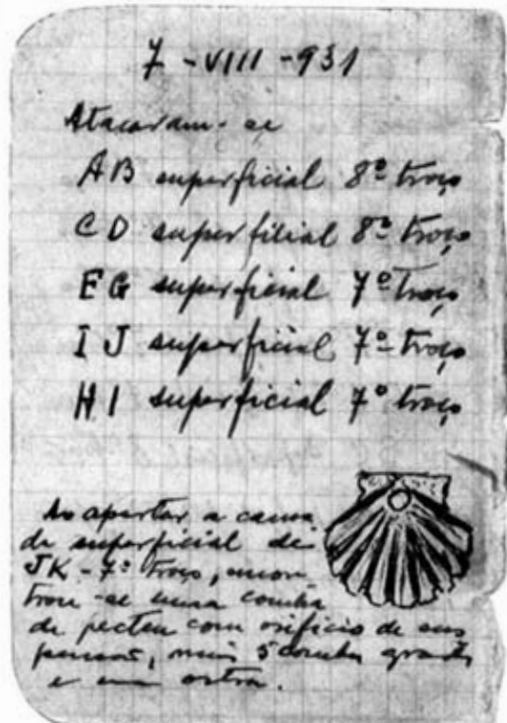 7 - VIII - 931
Atacaram-se
AB superficial 8º troço
CD superfilial 8º troço
EG superficial 7º troço
IJ superficial 7º troço
HI superficial 7º troço
Ao apartar a cama
da superficial de
JK - 7º troço, encon
trou-se uma concha
de pecten com orifício de sus
pensão, mais 5 conchas grandes
e uma ostra.